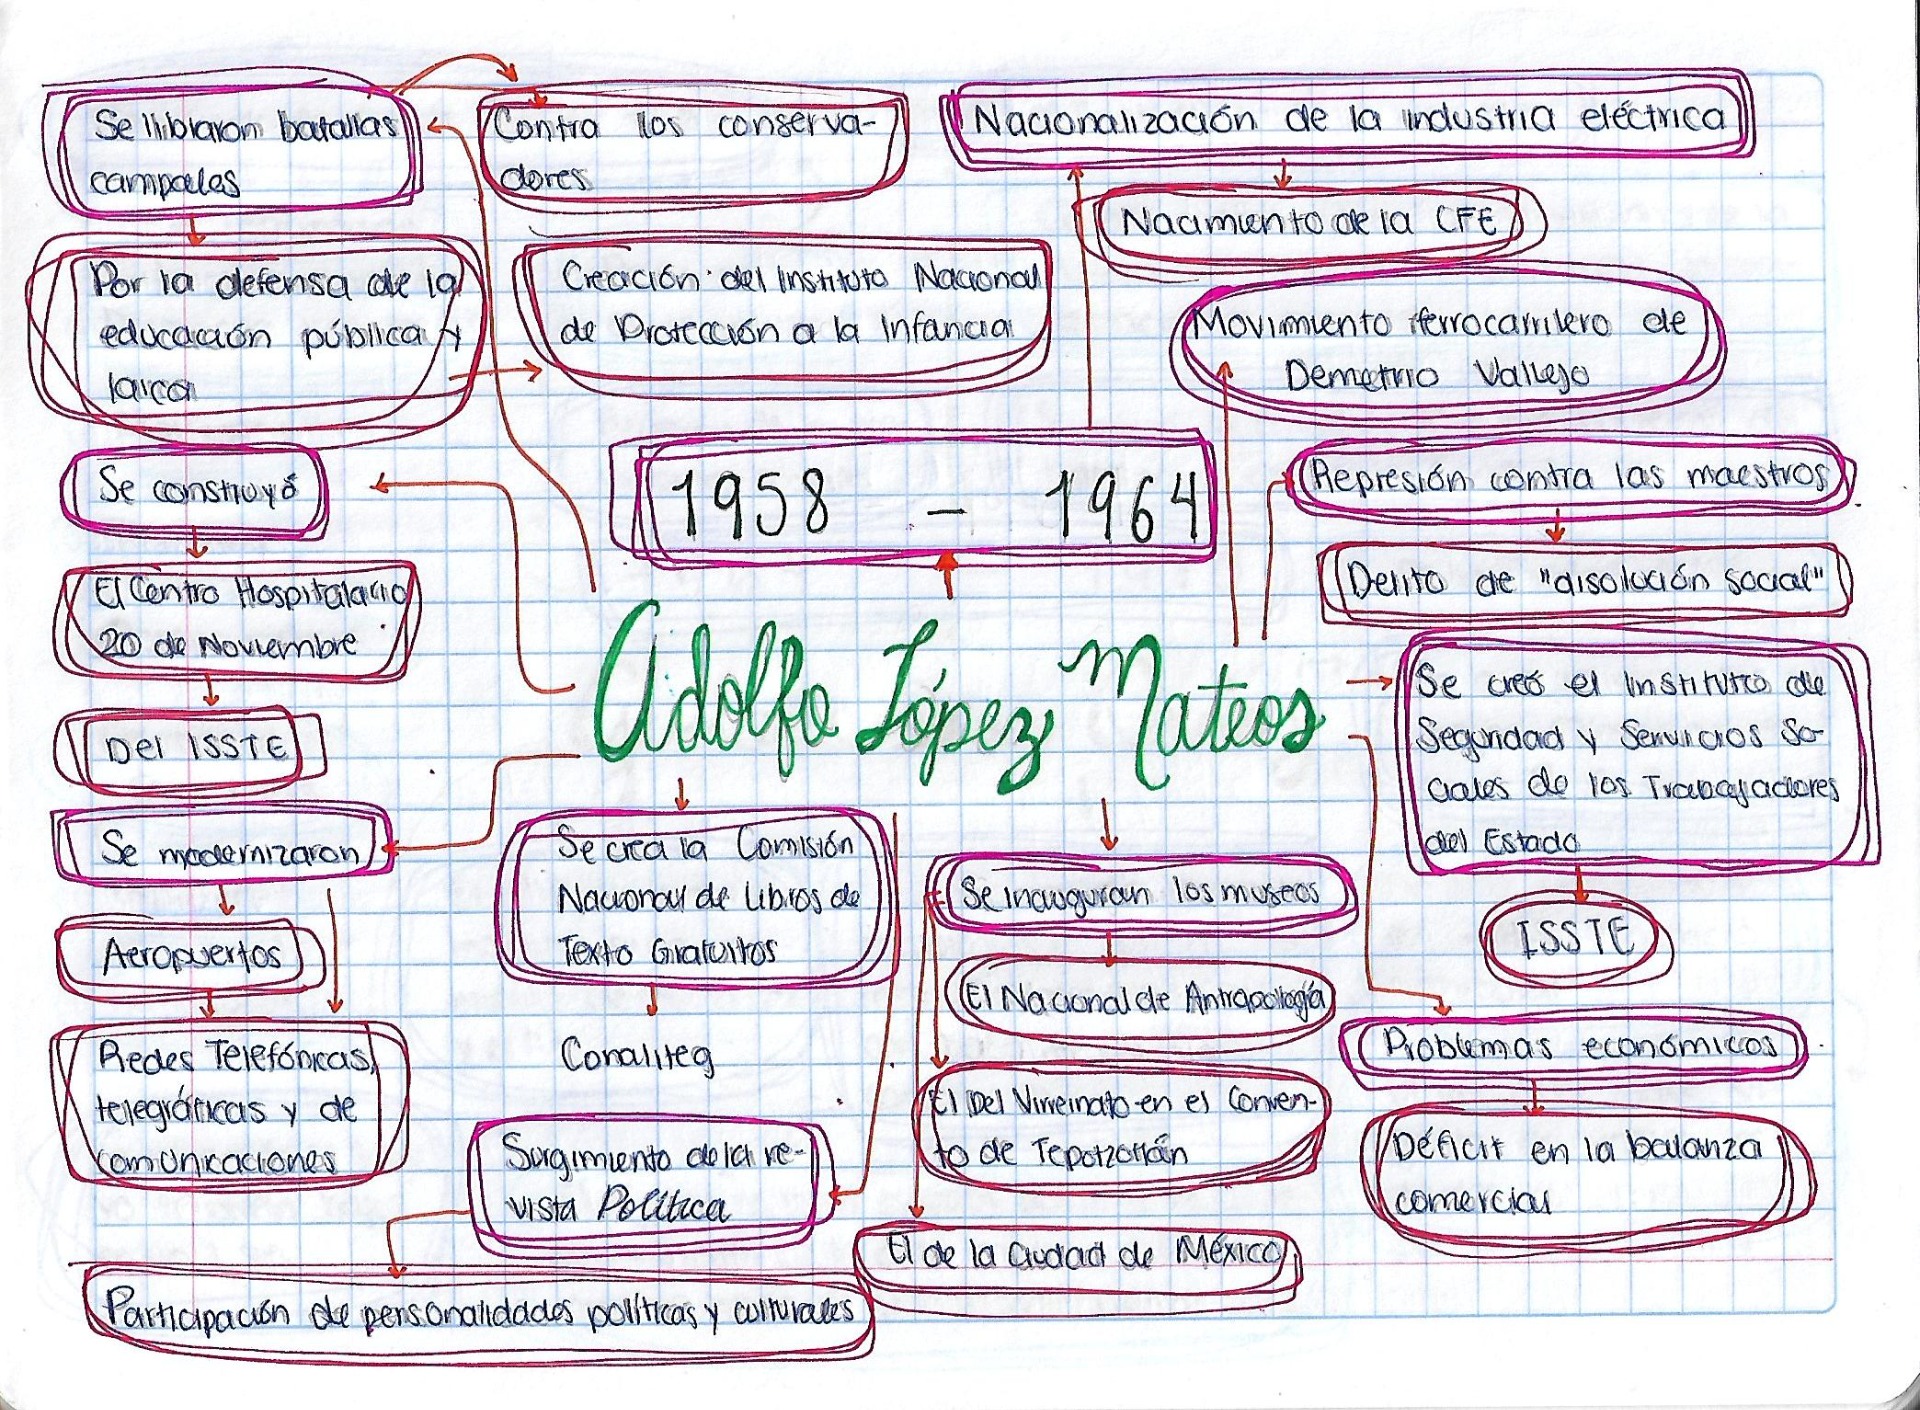 Se llibraron batallas
campales
Contra los conserva-
dores
Nacionalización de la industria eléctrica
Nacimiento de la CFE
Por la defensa de la
educación pública y
laica
Creación del Instituto Nacional
de Protección a la Infancia
Movimiento ferrocarrilero de
Demetrio Vallejo
Se construyó
1958 - 1964
Represión contra las maestros
Delito de "disolución social"
El Centro Hospitalacio
20 de Noviembre
Del ISSTE
Adolfo López Mateos
Se creó el Instituto de
Seguridad y Servicios So-
ciales de los Trabajadores
del Estado
ISSTE
Se modernizaron
Aeropuertos
Redes Telefónicas,
telegráficas y de
comunicaciones
Se crea la Comisión
Nacional de Libros de
Texto Gratuitos
Conaliteg
Surgimiento de la re-
vista Política
Participación de personalidades políticas y culturales
Se inauguran los museos
El Nacional de Antropología
El Del Virreinato en el Conven-
to de Tepotzotlán
El de la Ciudad de México
Problemas económicos
Déficit en la balanza
comercial